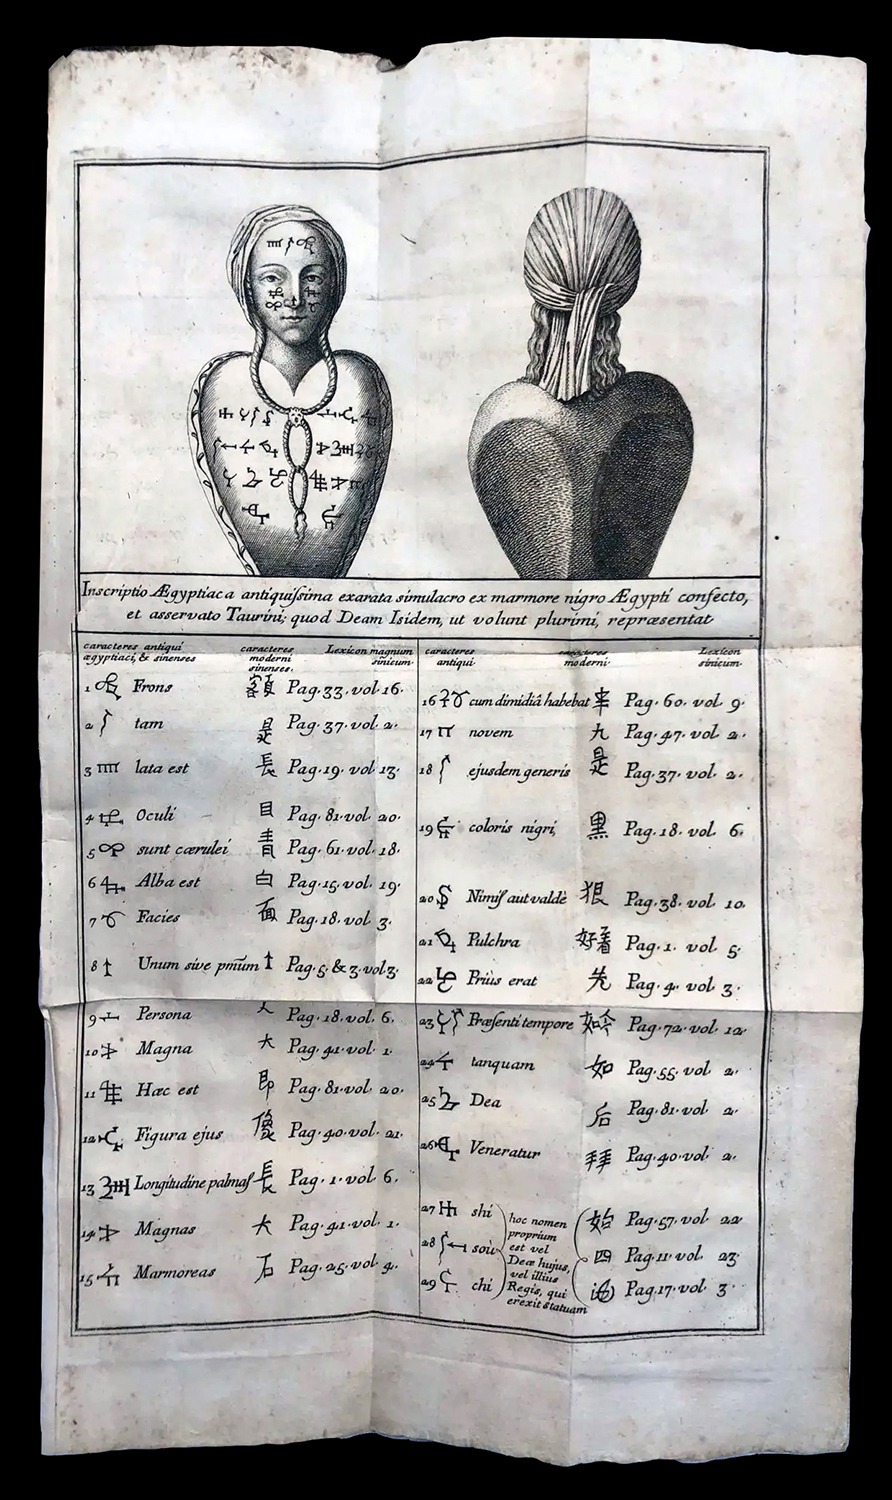 Inscriptio Ægyptiaca antiquissima exarata simulacro ex marmore nigro Ægypti confecto,
et asservato Taurini; quod Deam Isidem, ut volunt plurimi, repræsentat
caracteres antiqui ægyptiaci, & sinenses caracteres moderni sinenses. Lexicon magnum sinicum.
1 Frons 額 Pag. 33. vol. 16.
2 tam 是 Pag. 37. vol. 2.
3 lata est 長 Pag. 19. vol. 13.
4 Oculi 目 Pag. 81. vol. 20.
5 sunt cærulei 青 Pag. 61. vol. 18.
6 Alba est 白 Pag. 15. vol. 19.
7 Facies 面 Pag. 18. vol. 3.
8 Unum sive pmũm Pag. 5. & 3. vol. 3.
9 Persona Pag. 18. vol. 6.
10 Magna 大 Pag. 41. vol. 1.
11 Hæc est 即 Pag. 81. vol. 20.
12 Figura ejus 像 Pag. 40. vol. 21.
13 Longitudine palmas 長 Pag. 1. vol. 6.
14 Magnas 大 Pag. 41. vol. 1.
15 Marmoreas 石 Pag. 25. vol. 4.
caracteres antiqui. caracteres moderni. Lexicon sinicum.
16 cum dimidiâ habebat Pag. 60. vol. 9.
17 novem 九 Pag. 47. vol. 2.
18 ejusdem generis 是 Pag. 37. vol. 2.
19 coloris nigri, 黑 Pag. 18. vol. 6.
20 Nimis aut valdè 狠 Pag. 38. vol. 10.
21 Pulchra 好看 Pag. 1. vol. 5.
22 Priùs erat 先 Pag. 4. vol. 3.
23 Præsenti tempore 如今 Pag. 72. vol. 12.
24 tanquam 如 Pag. 55. vol. 2.
25 Dea 后 Pag. 81. vol. 2.
26 Veneratur 拜 Pag. 40. vol. 2.
27 shi 始 Pag. 57. vol. 22
28 soù 四 Pag. 11. vol. 23.
29 chi Pag. 17. vol. 3.
hoc nomen
proprium
est vel
Deæ hujus,
vel illius
Regis, qui
erexit statuam